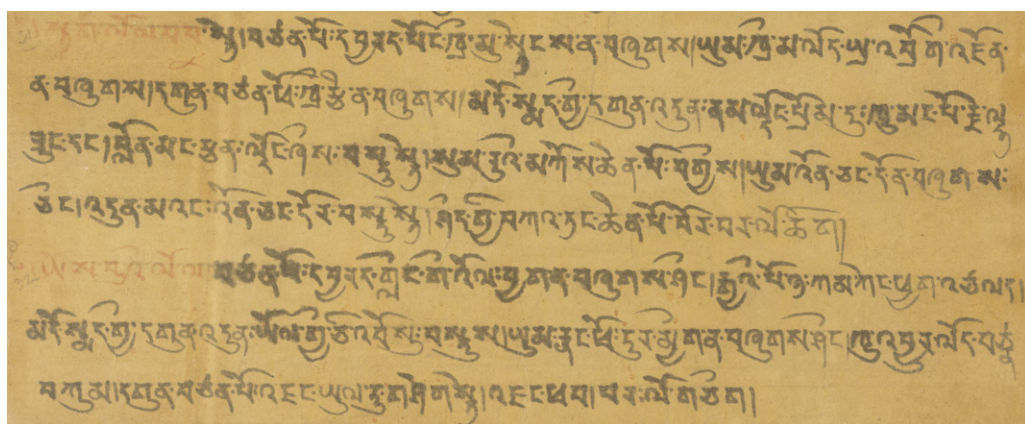 སྟག་གི་ལོ་ལ་བབ་སྟེ། བཙན་པོ་དབྱརད་པོ་ང་ཁྲ་མུ་སྟངས་ན་བཞུགས། ཡུམ་ཁྲི་མ་ལོད་ཡྲ་འབྲོག་འརོན་
ན་བཞུགས། དགུན་བཙན་ཕོ་ཁྲ་རྩེ་ན་བཞུགས། མདོ་སྨད་གྱི་དགུན་འདུན་ནམ་ལྡོང་པྲོམ་དུ་ཁུ་མང་པོ་རྗེ་ལྷ་
ཟུང་དང་། བློན་མང་རྩན་ལྡོང་ཞིས་བསྡུ་སྟེ། སུམ་རུའི་མཀོས་ཆེན་པོ་བགྱིས། ཡུམ་འོན་ཅང་དོ་ན་བཞུགས་
ཅིང་། འདུན་མ་འང་འོན་ཅང་དོར་བསྡུ་སྟེ། ཤིད་གྱི་བཀའ་ཏང་ཆེན་པོ་བོར་བར་ལོ་ཆིག །
ཡོས་བུའི་ལོ་ལ། བཙན་པོ་དབྱརད་གླིང་གི་འོལ་བྱག་ན་བཞུགས་ཤིང་། རྒྱའི་པོ་ཉ་ཀམ་ཀེང་ཕྱག་འཙལད།
མདོ་སྨད་གྱི་དགུན་འདུན་ཡོལ་གྱི་ཙེ་འབོསུ་བསྡུས། ཡུམ་རླང་པོ་དུར་མྱིག་ན་བཞུགས་ཤིང་། ཁུ་འབུར་ལོད་བཙན་
བཀུམ། དགུན་བཙན་པོ་འཇང་ཡུལ་དུ་གཤེགསྟེ། འཇང་ཕབ། པར་ལོ་གཅིག །